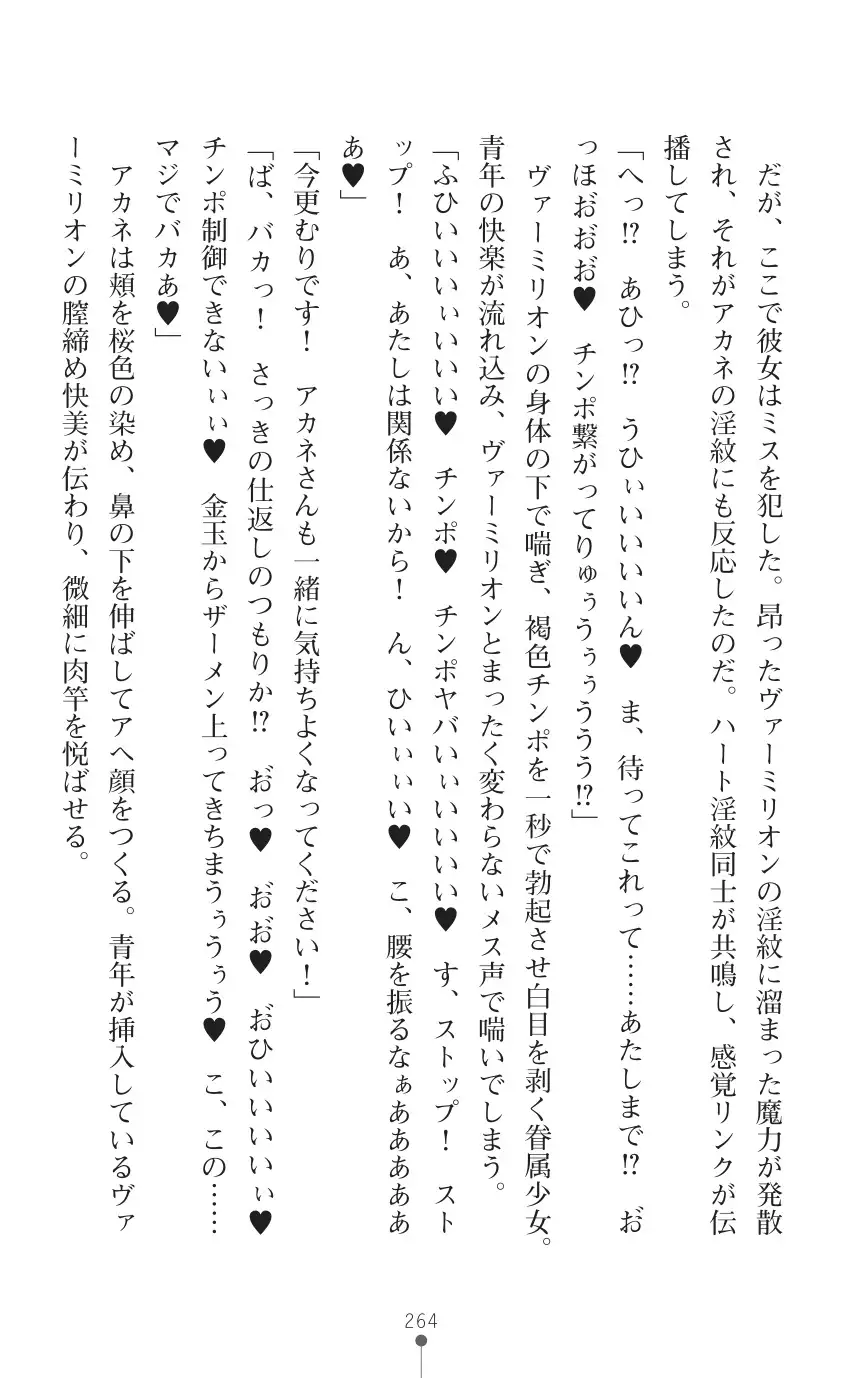 だが、ここで彼女はミスを犯した。昂ったヴァーミリオンの淫紋に溜まった魔力が発散
され、それがアカネの淫紋にも反応したのだ。ハート淫紋同士が共鳴し、感覚リンクが伝
播してしまう。
「へっ!?　あひっ!?　うひぃいいいいん♥　ま、待ってこれって……あたしまで!?　お゛
っほお゛お゛お゛♥　チンポ繋がってりゅぅうぅぅううう!?」
ヴァーミリオンの身体の下で喘ぎ、褐色チンポを一秒で勃起させ白目を剥く眷属少女。
青年の快楽が流れ込み、ヴァーミリオンとまったく変わらないメス声で喘いでしまう。
「ふひいいいぃいいい♥　チンポ♥　チンポヤバいぃいいいい♥　す、ストップ！　スト
ップ！　あ、あたしは関係ないから！　ん、ひいぃぃい♥　こ、腰を振るなぁあああああ
あ♥」
「今更むりです！　アカネさんも一緒に気持ちよくなってください！」
「ば、バカっ！　さっきの仕返しのつもりか!?　お゛っ♥　お゛お゛♥　お゛ひいいいいぃ♥
チンポ制御できないぃぃ♥　金玉からザーメン上ってきちまうぅうぅう♥　こ、この……
マジでバカあ♥」
アカネは頬を桜色の染め、鼻の下を伸ばしてアヘ顔をつくる。青年が挿入しているヴァ
ーミリオンの膣締め快美が伝わり、微細に肉竿を悦ばせる。
264